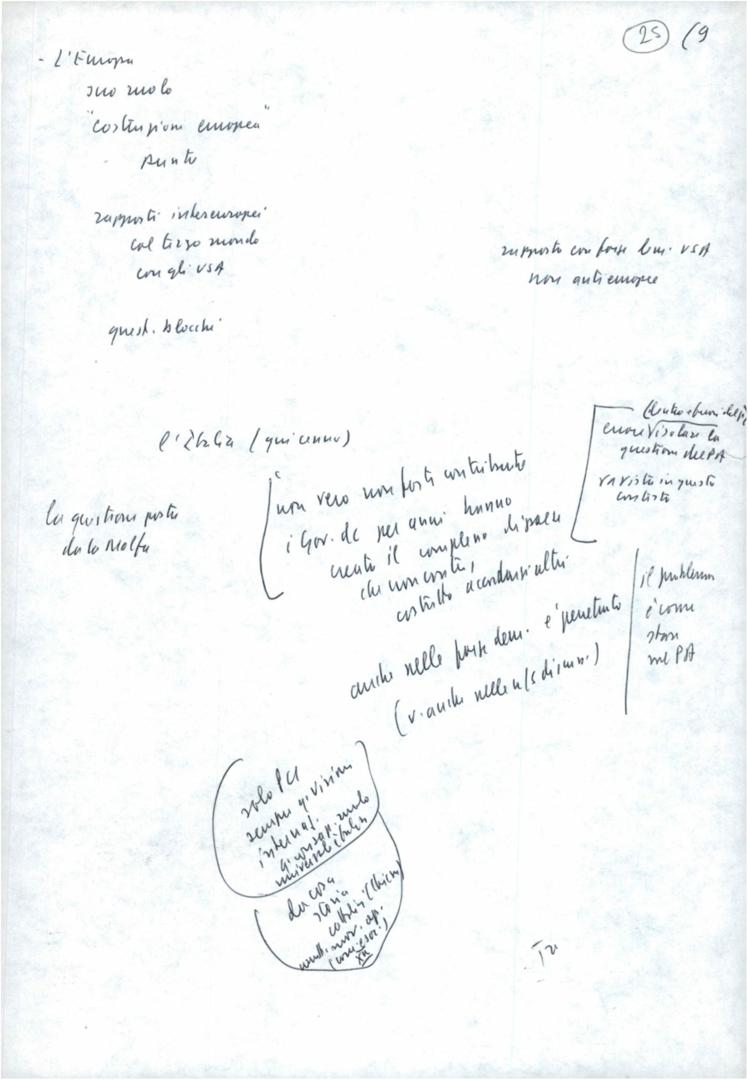 25 (9
- L'Europa
suo ruolo
"costruzione europea"
punto
rapporti intereuropei
col terzo mondo
con gli USA
rapporto con forze dem. USA
non antieuropee
quest. blocchi
l'Italia (qui cenno)
la questione posta
da La Malfa
non vero non porti contributo
i Gov. dc per anni hanno
creato il complesso di paese
che non conta,
costretto accodarsi altri
anche nelle forze dem. è penetrato
(v. anche nelle n/s discuss.)
questione del PA
va vista in questo
contesto
il problema
è come
stare
nel PA
solo PCI
sempre visione
internaz.
da cosa
storia